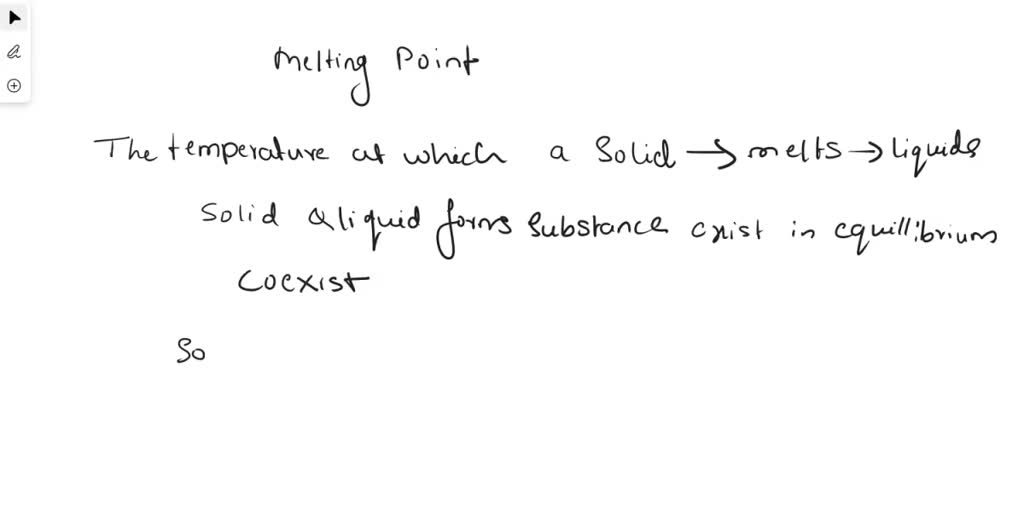 Melting Point
The temperature at which a Solid → melts → liquids
Solid & liquid forms Substance exist in equillibrium
Coexist
So